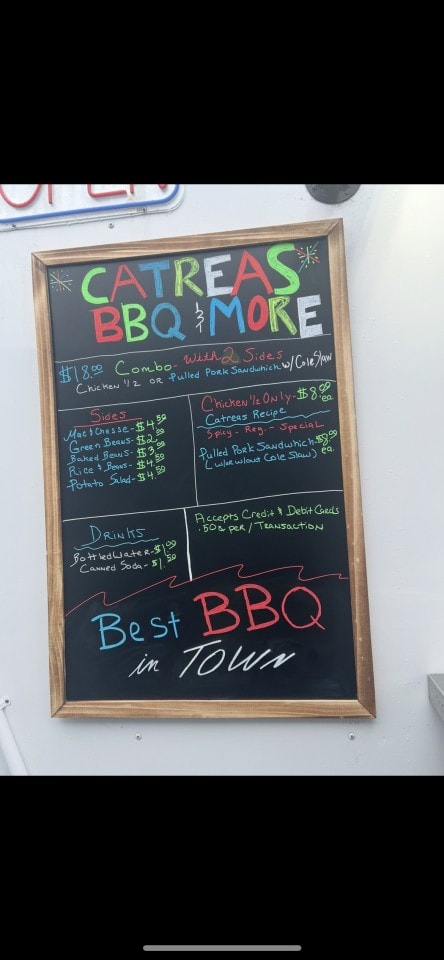 OPEN
CATREAS
BBQ & MORE
$18.00 Combo - With 2 Sides
Chicken 1/2 OR Pulled Pork Sandwich w/ Cole Slaw
Sides
Mac & Chesse - $4.50
Green Beans - $2.50
Baked Beans - $3.50
Rice & Beans - $4.50
Potato Salad - $4.50
Chicken 1/2 Only - $8.00 ea.
Catreas Recipe
Spicy - Reg. - Special
Pulled Pork Sandwich $8.00 ea.
(w/or w/out Cole Slaw)
Drinks
Bottled Water - $1.00
Canned Soda - $1.50
Accepts Credit & Debit Cards
.50¢ per / Transaction
Best BBQ
in TOWN